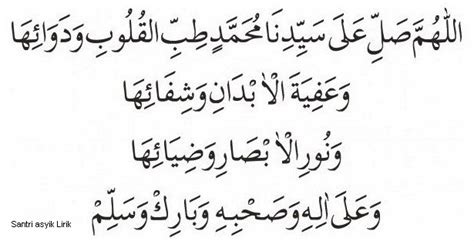 اَللّٰهُمَّ صَلِّ عَلَى سَيِّدِنَا مُحَمَّدٍ طِبِّ الْقُلُوبِ وَدَوَائِهَا
وَعَفِيَةِ الْاَبْدَانِ وَشِفَائِهَا
وَنُورِ الْاَبْصَارِ وَضِيَائِهَا
وَعَلَى اٰلِهِ وَصَحْبِهِ وَبَارِكْ وَسَلِّمْ
Santri asyik Lirik